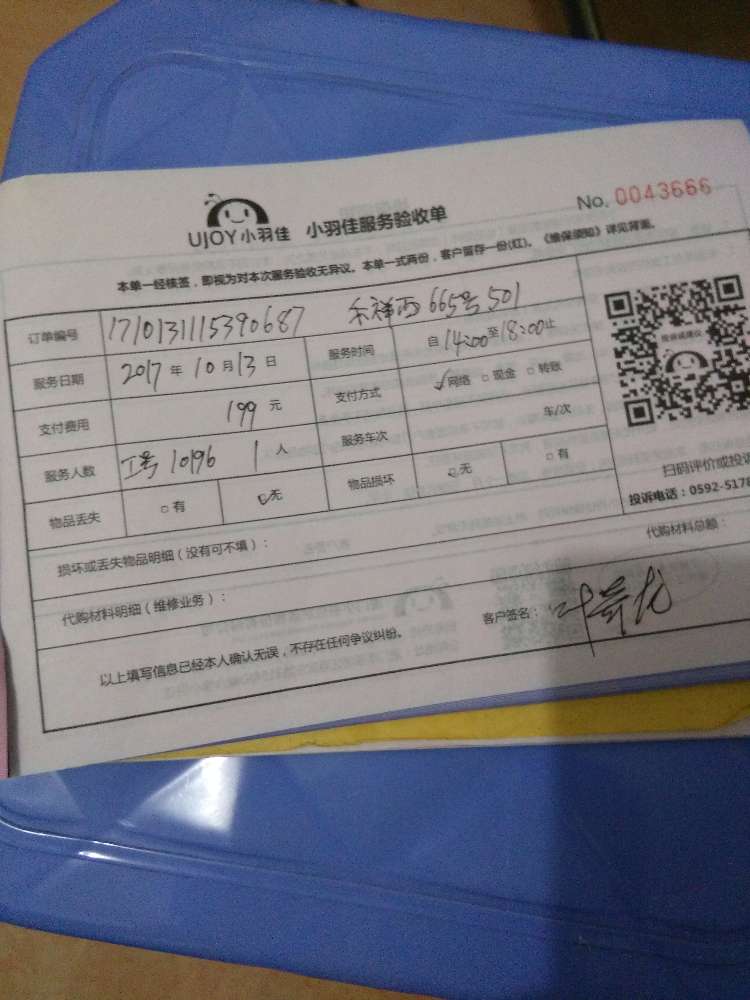 UJOY小羽佳 小羽佳服务验收单 No. 0043666
本单一经核签，即视为对本次服务验收无异议。本单一式两份，客户留存一份(红)。《维保须知》详见背面。
订单编号 1710131115390687 禾祥西665号501
服务日期 2017年10月13日 服务时间 自14:00至18:00止
支付费用 199元 支付方式 ✓网络 □现金 □转账
服务人数 工号10196 1人 服务车次 车/次
物品丢失 □有 ☑无 物品损坏 ☑无 □有
扫码评价或投诉
投诉电话：0592-5178
损坏或丢失物品明细（没有可不填）：
代购材料明细（维修业务）： 代购材料总额：
以上填写信息已经本人确认无误，不存在任何争议纠纷。 客户签名：